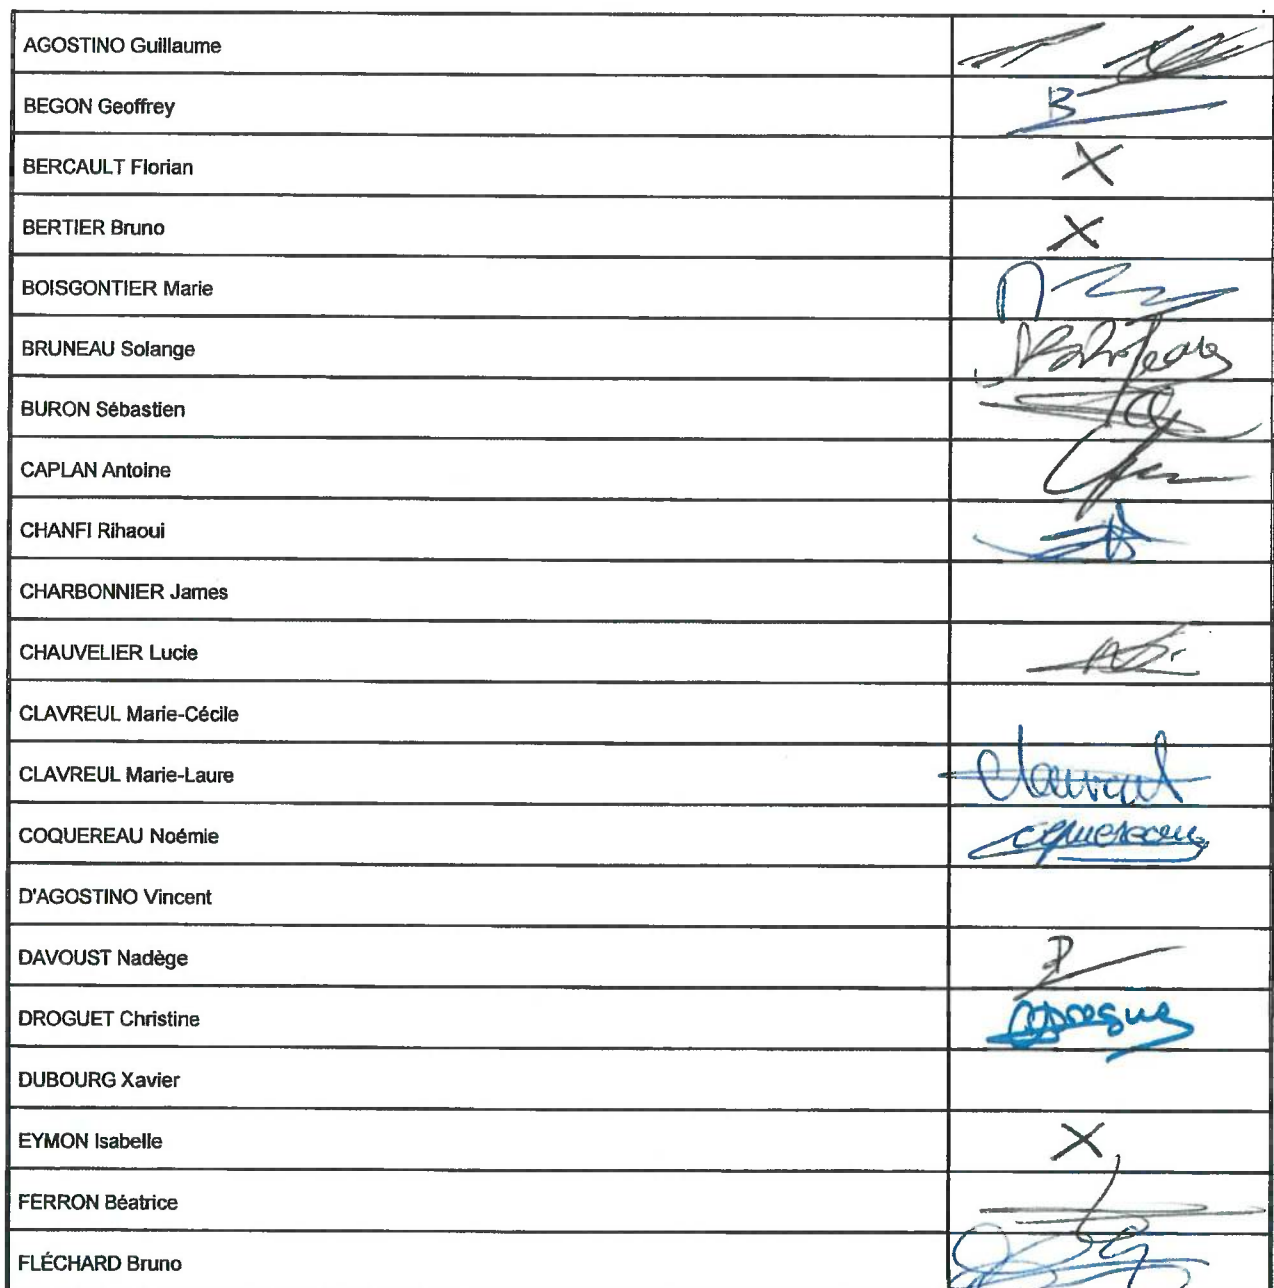 AGOSTINO Guillaume
BEGON Geoffrey
B
BERCAULT Florian
X
BERTIER Bruno
X
BOISGONTIER Marie
BRUNEAU Solange
BURON Sébastien
CAPLAN Antoine
CHANFI Rihaoui
CHARBONNIER James
CHAUVELIER Lucie
CLAVREUL Marie-Cécile
CLAVREUL Marie-Laure
COQUEREAU Noémie
Coquereau
D'AGOSTINO Vincent
DAVOUST Nadège
DROGUET Christine
DUBOURG Xavier
EYMON Isabelle
X
FERRON Béatrice
FLÉCHARD Bruno